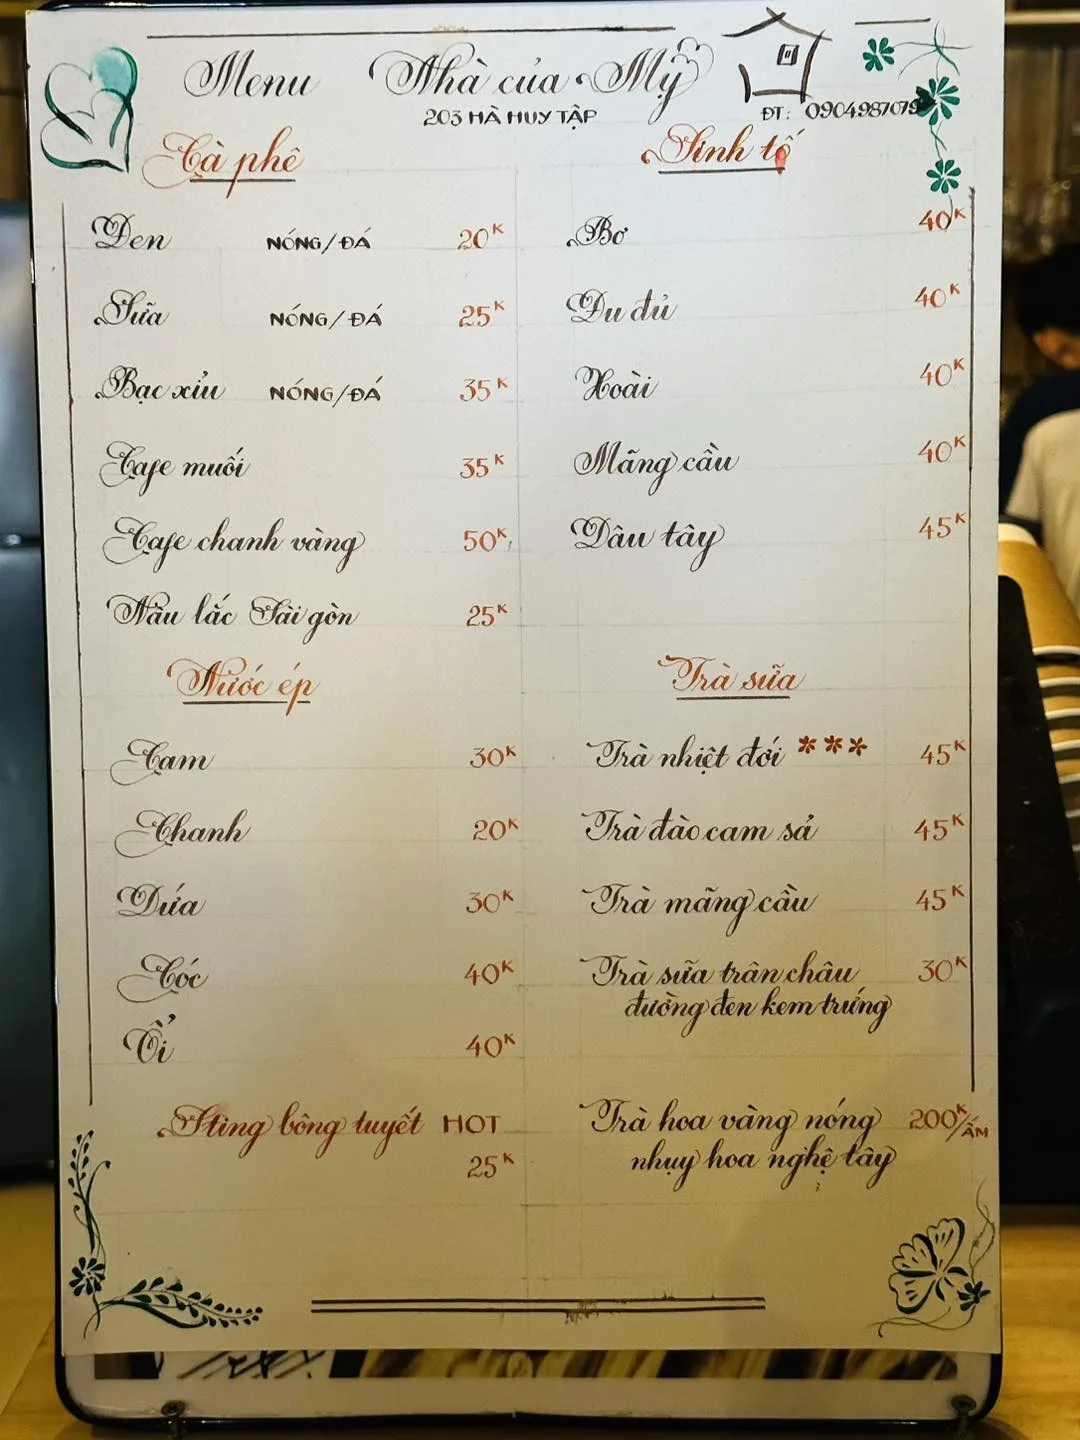 Menu Nhà của Mỹ
203 HÀ HUY TẬP
ĐT: 0904987079
Cà phê
Đen NÓNG/ĐÁ 20K
Sữa NÓNG/ĐÁ 25K
Bạc xỉu NÓNG/ĐÁ 35K
Cafe muối 35K
Cafe chanh vàng 50K
Nâu lắc Sài gòn 25K
Sinh tố
Bơ 40K
Đu đủ 40K
Xoài 40K
Mãng cầu 40K
Dâu tây 45K
Nước ép
Cam 30K
Chanh 20K
Dứa 30K
Cóc 40K
Ổi 40K
Sting bông tuyết HOT
25K
Trà sữa
Trà nhiệt đới *** 45K
Trà đào cam sả 45K
Trà mãng cầu 45K
Trà sữa trân châu 30K
đường đen kem trứng
Trà hoa vàng nóng 200K/ẤM
nhụy hoa nghệ tây